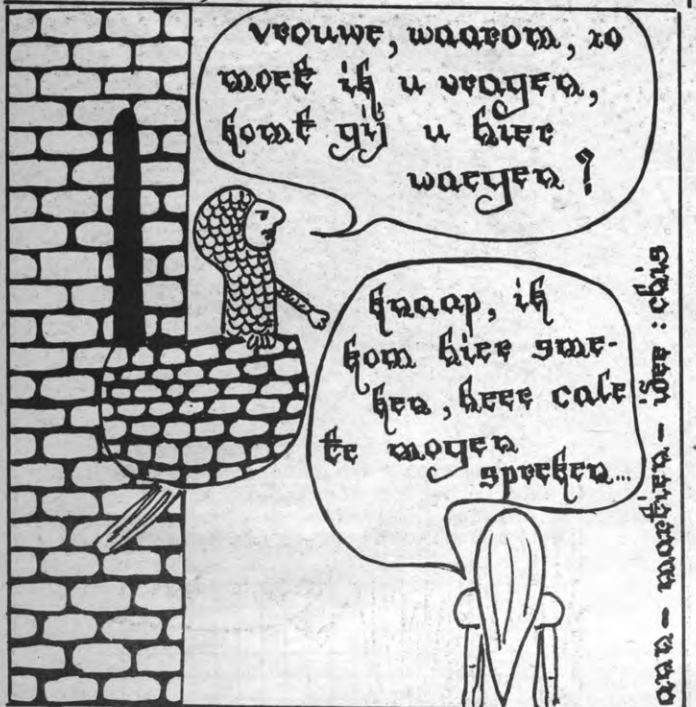 vrouwe, waarom, zo
moet ik u vragen,
komt gij u hier
waegen?
knaap, ik
kom hier sme-
ken, heer cale
te mogen
spreken...
idee : chis